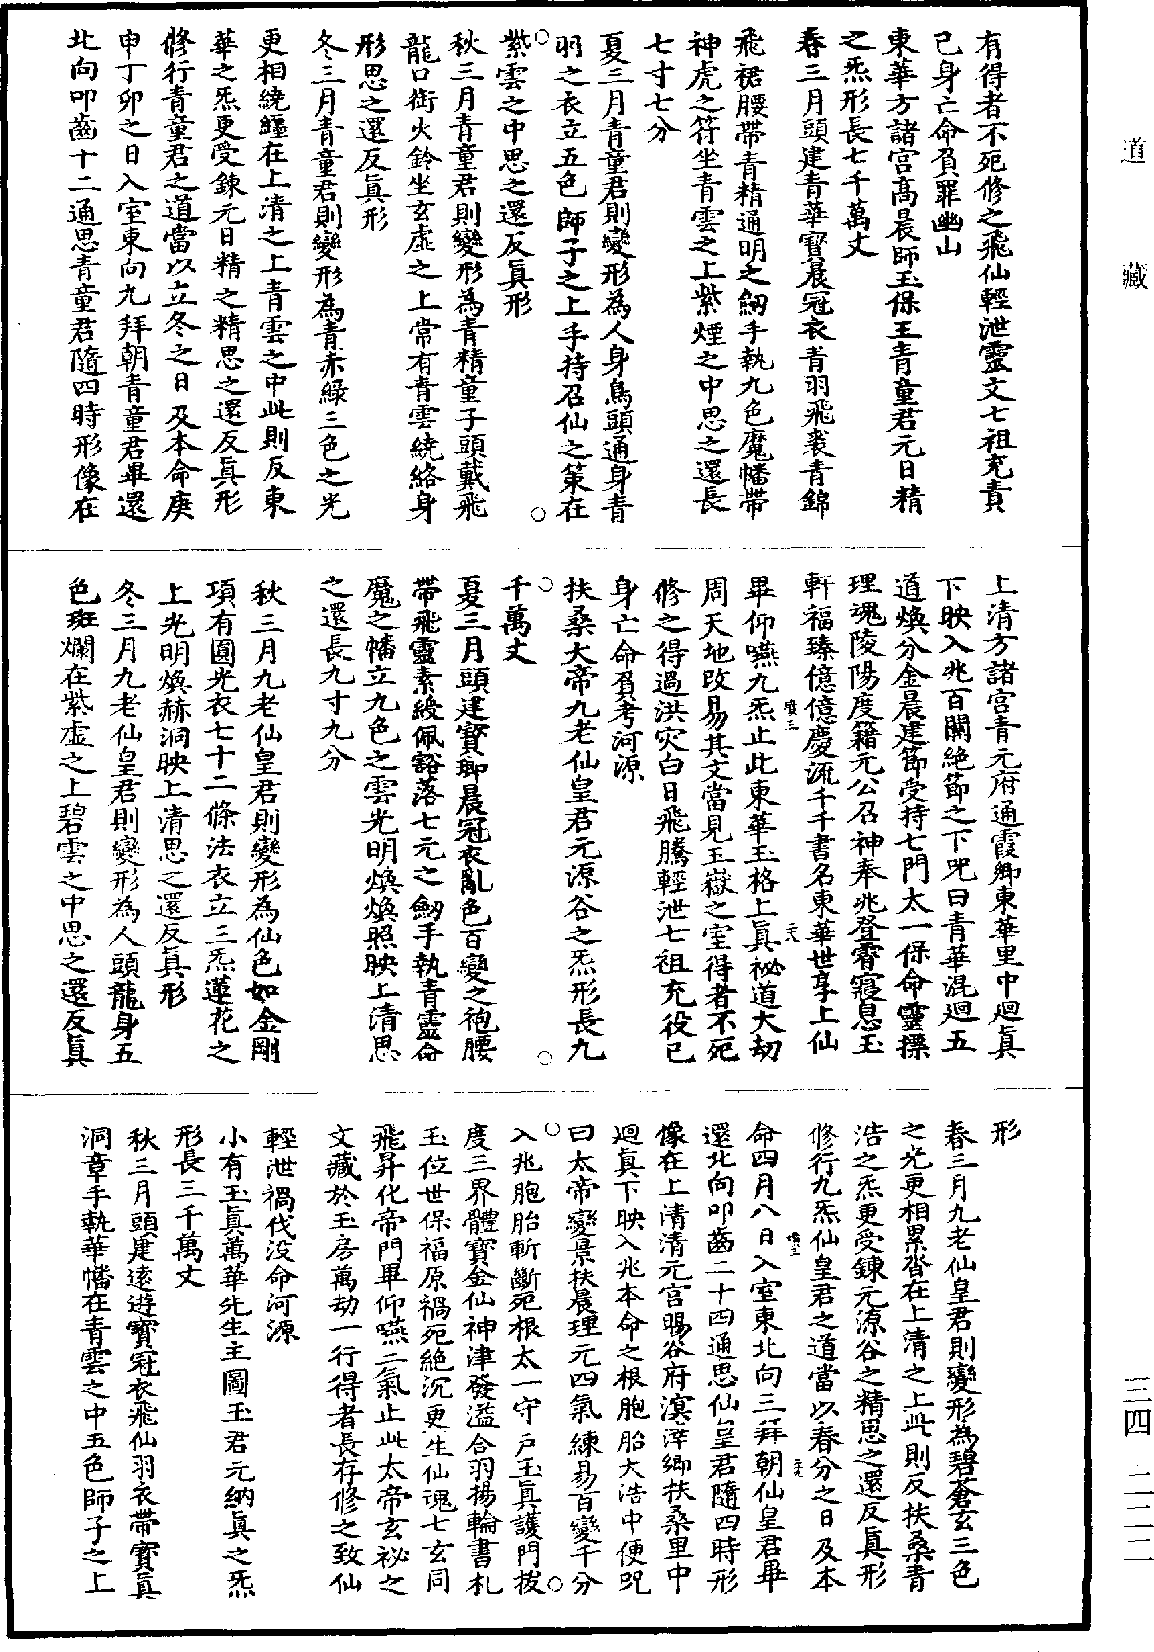 道藏
三四 二二二
有得者不死修之飛仙輕泄靈文七祖充責
己身亡命負罪幽山
東華方諸宮高晨師玉保王青童君元日精
之炁形長七千萬丈
春三月頭建青華寶晨冠衣青羽飛裘青錦
飛裙腰帶青精通明之劒手執九色魔幡帶
神虎之符坐青雲之上紫煙之中思之還長
七寸七分
夏三月青童君則變形為人身鳥頭通身青
羽之衣立五色師子之上手持召仙之策在
紫雲之中思之還反眞形
秋三月青童君則變形為青精童子頭戴飛
龍口銜火鈴坐玄虛之上常有青雲繞絡身
形思之還反眞形
冬三月青童君則變形為青赤綠三色之光
更相繞纏在上清之上青雲之中此則反東
華之炁更受鍊元日精之精思之還反眞形
修行青童君之道當以立冬之日及本命庚
申丁卯之日入室東向九拜朝青童君畢還
北向叩齒十二通思青童君隨四時形像在
上清方諸宮青元府通霞鄉東華里中迴眞
下映入兆百關絕節之下呪曰青華混迴五
道煥分金晨建節受持七門太一保命靈摽
理魂陵陽度籍元公召神奉兆登霄寢息玉
軒福臻億億慶流千千書名東華世享上仙
畢仰嚥九炁止此東華玉格上眞祕道大劫
周天地改易其文當見玉嶽之室得者不死
修之得過洪灾白日飛騰輕泄七祖充役己
身亡命負考河源
扶桑大帝九老仙皇君元源谷之炁形長九
千萬丈
夏三月頭建寶琅晨冠衣亂色百變之袍腰
帶飛靈素綬佩豁落七元之劒手執青靈命
魔之幡立九色之雲光明煥煥照映上清思
之還長九寸九分
秋三月九老仙皇君則變形為仙色如金剛
項有圓光衣七十二條法衣立三炁蓮花之
上光明煥赫洞映上清思之還反眞形
冬三月九老仙皇君則變形為人頭龍身五
色斑爛在紫虛之上碧雲之中思之還反眞
形
春三月九老仙皇君則變形為碧蒼玄三色
之光更相累沓在上清之上此則反扶桑青
浩之炁更受鍊元源谷之精思之還反眞形
修行九炁仙皇君之道當以春分之日及本
命四月八日入室東北向三拜朝仙皇君畢
還北向叩齒二十四通思仙皇君隨四時形
像在上清清元宮暘谷府溟涬鄉扶桑里中
迴眞下映入兆本命之根胞胎大浩中便呪
曰太帝變景扶晨理元四氣練易百變千分
入兆胞胎斬斷死根太一守戶玉眞護門拔
度三界體寶金仙神津發溢合羽揚輪書札
玉位世保福原禍死絕沉更生仙魂七玄同
飛昇化帝門畢仰嚥二氣止此太帝玄祕之
文藏於玉房萬劫一行得者長存修之致仙
輕泄禍伐沒命河源
小有玉眞萬華先生主圖玉君元納眞之炁
形長三千萬丈
秋三月頭建遠遊寶冠衣飛仙羽衣帶寶眞
洞章手執華幡在青雲之中五色師子之上